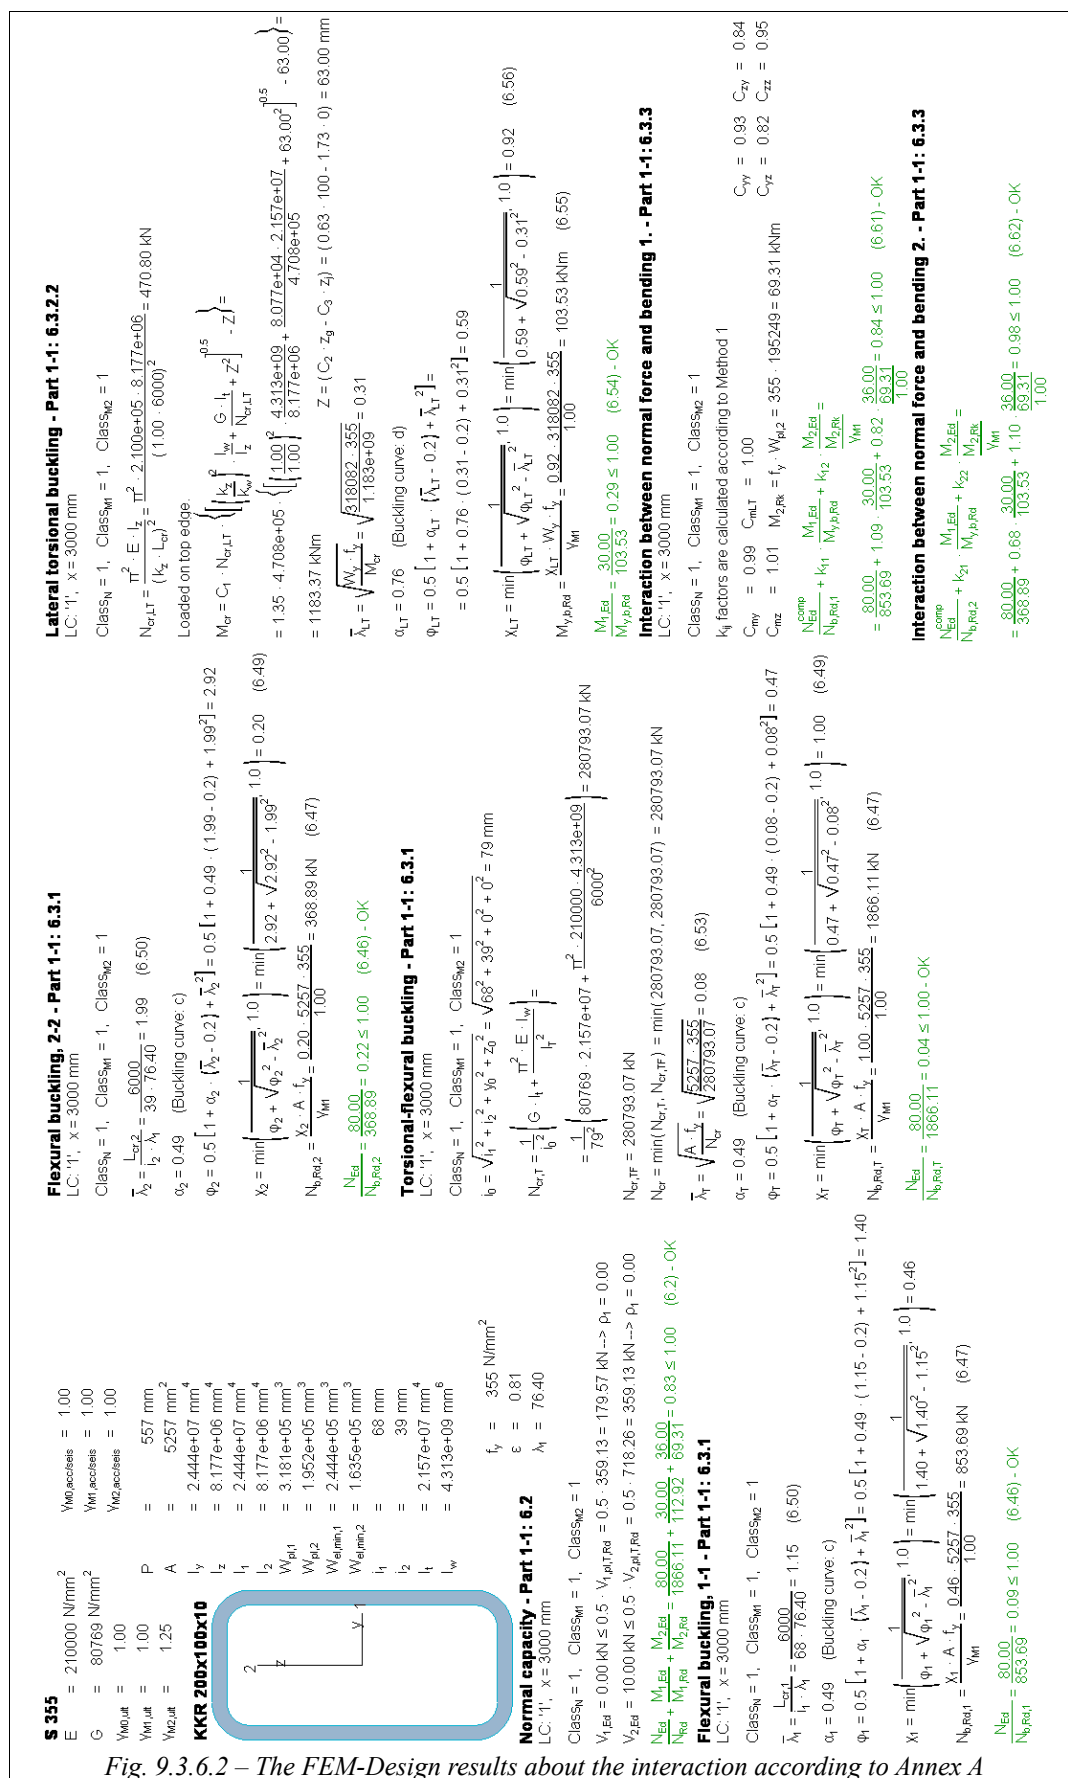 S 355
E = 210000 N/mm²
G = 80769 N/mm²
γM0,ult = 1.00
γM1,ult = 1.00
γM2,ult = 1.25
γM0,acc/seis = 1.00
γM1,acc/seis = 1.00
γM2,acc/seis = 1.00
KKR 200x100x10
2
z
y
1
P = 557 mm
A = 5257 mm²
Iy = 2.444e+07 mm⁴
Iz = 8.177e+06 mm⁴
I1 = 2.444e+07 mm⁴
I2 = 8.177e+06 mm⁴
Wpl,1 = 3.181e+05 mm³
Wpl,2 = 1.952e+05 mm³
Wel,min,1 = 2.444e+05 mm³
Wel,min,2 = 1.635e+05 mm³
i1 = 68 mm
i2 = 39 mm
It = 2.157e+07 mm⁴
Iw = 4.313e+09 mm⁶
fy = 355 N/mm²
ε = 0.81
λ1 = 76.40
Normal capacity - Part 1-1: 6.2
LC: '1', x = 3000 mm
ClassN = 1, ClassM1 = 1, ClassM2 = 1
V1,Ed = 0.00 kN ≤ 0.5 · V1,pl,T,Rd = 0.5 · 359.13 = 179.57 kN --> ρ1 = 0.00
V2,Ed = 10.00 kN ≤ 0.5 · V2,pl,T,Rd = 0.5 · 718.26 = 359.13 kN --> ρ1 = 0.00
NEd/NRd + M1,Ed/M1,Rd + M2,Ed/M2,Rd = 80.00/1866.11 + 30.00/112.92 + 36.00/69.31 = 0.83 ≤ 1.00 (6.2) - OK
Flexural buckling, 1-1 - Part 1-1: 6.3.1
LC: '1', x = 3000 mm
ClassN = 1, ClassM1 = 1, ClassM2 = 1
λ̄1 = Lcr,1/(i1 · λ1) = 6000/(68 · 76.40) = 1.15 (6.50)
α1 = 0.49 (Buckling curve: c)
φ1 = 0.5 [1 + α1 · (λ̄1 - 0.2) + λ̄1²] = 0.5 [1 + 0.49 · (1.15 - 0.2) + 1.15²] = 1.40
χ1 = min(1/(φ1 + √(φ1² - λ̄1²)), 1.0) = min(1/(1.40 + √(1.40² - 1.15²)), 1.0) = 0.46
Nb,Rd,1 = χ1 · A · fy/γM1 = 0.46 · 5257 · 355/1.00 = 853.69 kN (6.47)
NEd/Nb,Rd,1 = 80.00/853.69 = 0.09 ≤ 1.00 (6.46) - OK
Flexural buckling, 2-2 - Part 1-1: 6.3.1
LC: '1', x = 3000 mm
ClassN = 1, ClassM1 = 1, ClassM2 = 1
λ̄2 = Lcr,2/(i2 · λ1) = 6000/(39 · 76.40) = 1.99 (6.50)
α2 = 0.49 (Buckling curve: c)
φ2 = 0.5 [1 + α2 · (λ̄2 - 0.2) + λ̄2²] = 0.5 [1 + 0.49 · (1.99 - 0.2) + 1.99²] = 2.92
χ2 = min(1/(φ2 + √(φ2² - λ̄2²)), 1.0) = min(1/(2.92 + √(2.92² - 1.99²)), 1.0) = 0.20 (6.49)
Nb,Rd,2 = χ2 · A · fy/γM1 = 0.20 · 5257 · 355/1.00 = 368.89 kN (6.47)
NEd/Nb,Rd,2 = 80.00/368.89 = 0.22 ≤ 1.00 (6.46) - OK
Torsional-flexural buckling - Part 1-1: 6.3.1
LC: '1', x = 3000 mm
ClassN = 1, ClassM1 = 1, ClassM2 = 1
i0 = √(i1² + i2² + y0² + z0²) = √(68² + 39² + 0² + 0²) = 79 mm
Ncr,T = 1/i0² (G · It + π² · E · Iw/lT²) =
= 1/79² (80769 · 2.157e+07 + π² · 210000 · 4.313e+09/6000²) = 280793.07 kN
Ncr,TF = 280793.07 kN
Ncr = min(Ncr,T, Ncr,TF) = min(280793.07, 280793.07) = 280793.07 kN
λ̄T = √(A · fy/Ncr) = √(5257 · 355/280793.07) = 0.08 (6.53)
αT = 0.49 (Buckling curve: c)
φT = 0.5 [1 + αT · (λ̄T - 0.2) + λ̄T²] = 0.5 [1 + 0.49 · (0.08 - 0.2) + 0.08²] = 0.47
χT = min(1/(φT + √(φT² - λ̄T²)), 1.0) = min(1/(0.47 + √(0.47² - 0.08²)), 1.0) = 1.00 (6.49)
Nb,Rd,T = χT · A · fy/γM1 = 1.00 · 5257 · 355/1.00 = 1866.11 kN (6.47)
NEd/Nb,Rd,T = 80.00/1866.11 = 0.04 ≤ 1.00 - OK
Lateral torsional buckling - Part 1-1: 6.3.2.2
LC: '1', x = 3000 mm
ClassN = 1, ClassM1 = 1, ClassM2 = 1
Ncr,LT = π² · E · Iz/(kz · Lcr)² = π² · 2.100e+05 · 8.177e+06/(1.00 · 6000)² = 470.80 kN
Loaded on top edge.
Mcr = C1 · Ncr,LT {[(kz/kw)² · Iw/Iz + G · It/Ncr,LT + Z²]^0.5 - Z} =
= 1.35 · 4.708e+05 · {[(1.00/1.00)² · 4.313e+09/8.177e+06 + 8.077e+04 · 2.157e+07/4.708e+05 + 63.00²]^0.5 - 63.00} =
= 1183.37 kNm
Z = (C2 · zg - C3 · zj) = (0.63 · 100 - 1.73 · 0) = 63.00 mm
λ̄LT = √(Wy · fy/Mcr) = √(318082 · 355/1.183e+09) = 0.31
αLT = 0.76 (Buckling curve: d)
φLT = 0.5 [1 + αLT · (λ̄LT - 0.2) + λ̄LT²] =
= 0.5 [1 + 0.76 · (0.31 - 0.2) + 0.31²] = 0.59
χLT = min(1/(φLT + √(φLT² - λ̄LT²)), 1.0) = min(1/(0.59 + √(0.59² - 0.31²)), 1.0) = 0.92 (6.56)
My,b,Rd = χLT · Wy · fy/γM1 = 0.92 · 318082 · 355/1.00 = 103.53 kNm (6.55)
M1,Ed/My,b,Rd = 30.00/103.53 = 0.29 ≤ 1.00 (6.54) - OK
Interaction between normal force and bending 1. - Part 1-1: 6.3.3
LC: '1', x = 3000 mm
ClassN = 1, ClassM1 = 1, ClassM2 = 1
kij factors are calculated according to Method 1
Cmy = 0.99 CmLT = 1.00 Cyy = 0.93 Czy = 0.84
Cmz = 1.01 M2,Rk = fy · Wpl,2 = 355 · 195249 = 69.31 kNm Cyz = 0.82 Czz = 0.95
NEd^comp/Nb,Rd,1 + k11 · M1,Ed/My,b,Rd + k12 · M2,Ed/(M2,Rk/γM1) =
= 80.00/853.69 + 1.09 · 30.00/103.53 + 0.82 · 36.00/(69.31/1.00) = 0.84 ≤ 1.00 (6.61) - OK
Interaction between normal force and bending 2. - Part 1-1: 6.3.3
NEd^comp/Nb,Rd,2 + k21 · M1,Ed/My,b,Rd + k22 · M2,Ed/(M2,Rk/γM1) =
= 80.00/368.89 + 0.68 · 30.00/103.53 + 1.10 · 36.00/(69.31/1.00) = 0.98 ≤ 1.00 (6.62) - OK
Fig. 9.3.6.2 – The FEM-Design results about the interaction according to Annex A